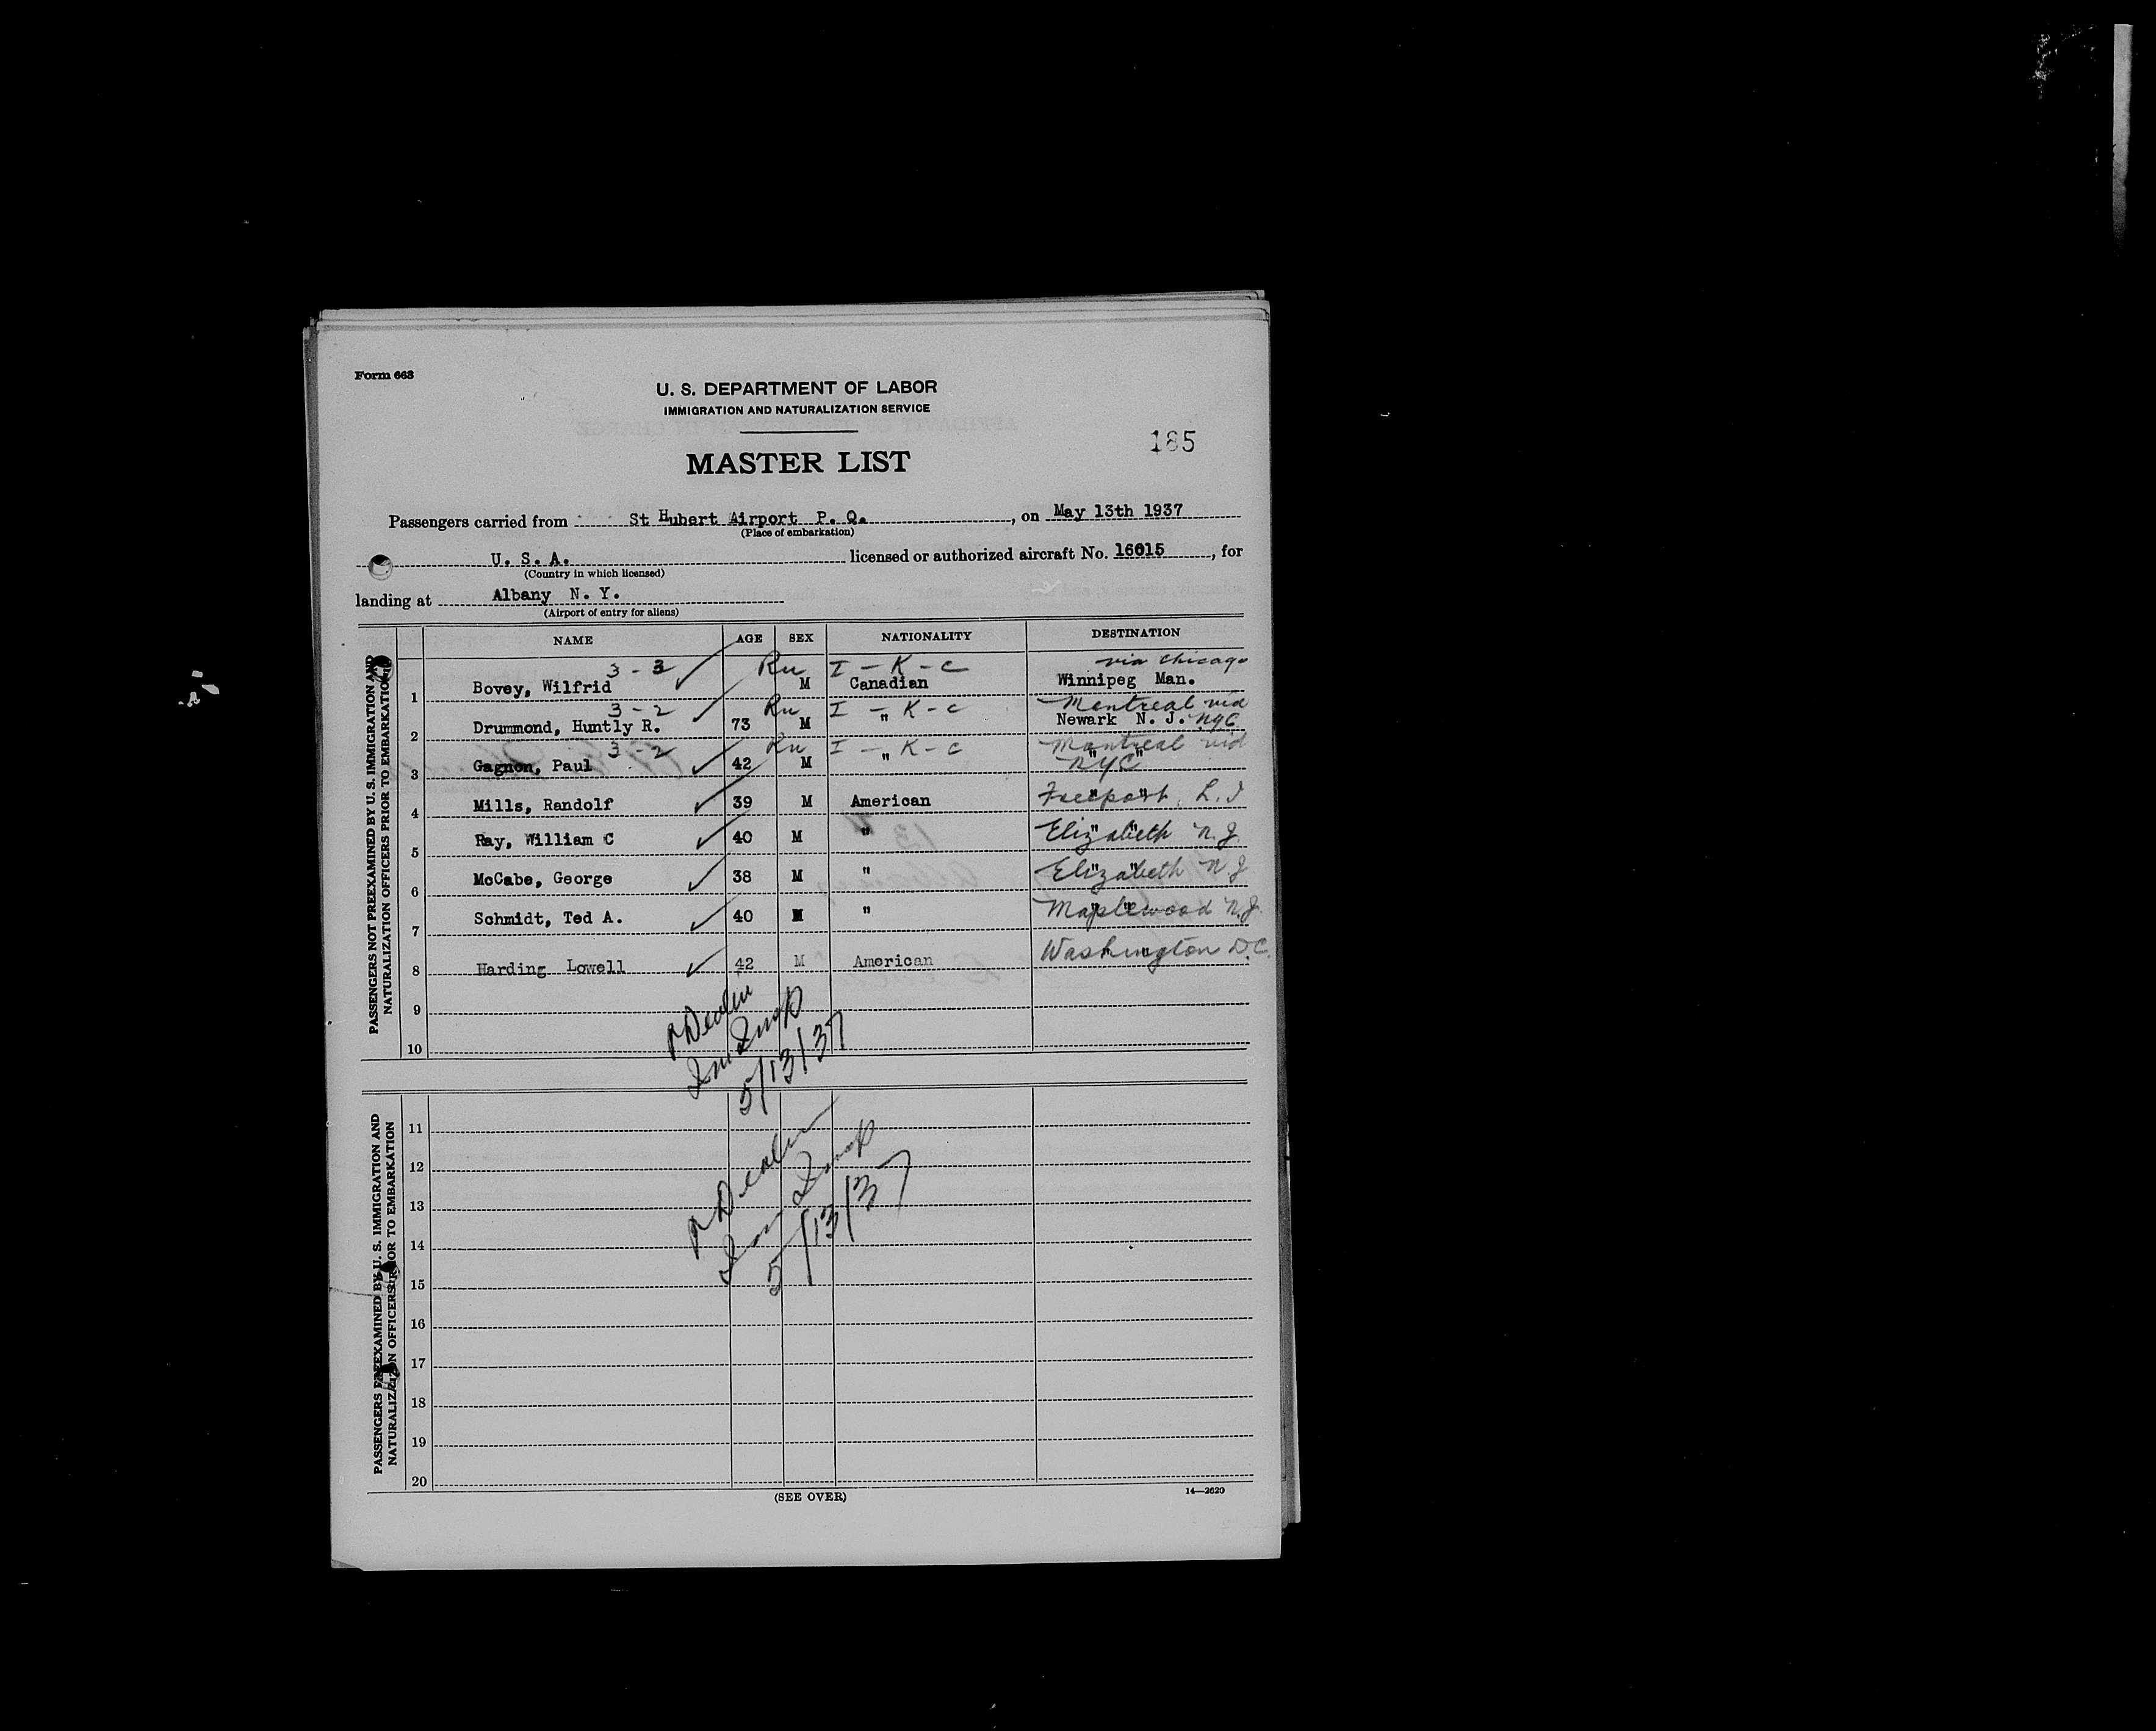 Form 663
U. S. DEPARTMENT OF LABOR
IMMIGRATION AND NATURALIZATION SERVICE
185
MASTER LIST
Passengers carried from St Hubert Airport P. Q. , on May 13th 1937
(Place of embarkation)
U. S. A. licensed or authorized aircraft No. 16015 , for
(Country in which licensed)
landing at Albany N. Y.
(Airport of entry for aliens)
NAME AGE SEX NATIONALITY DESTINATION
PASSENGERS NOT PREEXAMINED BY U. S. IMMIGRATION AND
NATURALIZATION OFFICERS PRIOR TO EMBARKATION
3-3 I - K - C via Chicago
1 Bovey, Wilfrid M Canadian Winnipeg Man.
3-2 I - K - C Montreal via
2 Drummond, Huntly R. 73 M " Newark N. J. NYC
3-2 I - K - C Montreal via
3 Gagnon, Paul 42 M " " " NYC
4 Mills, Randolf 39 M American " " Freeport, L. I
5 Ray, William C 40 M " " " Elizabeth N. J.
6 McCabe, George 38 M " " " Elizabeth N J
7 Schmidt, Ted A. 40 M " " " Maplewood N. J.
8 Harding Lowell 42 M American " " Washington D.C.
9
10
5/13/37
PASSENGERS PREEXAMINED BY U. S. IMMIGRATION AND
NATURALIZATION OFFICERS PRIOR TO EMBARKATION
11
12
13
14
5/13/37
15
16
17
18
19
20
(SEE OVER)
14—2620